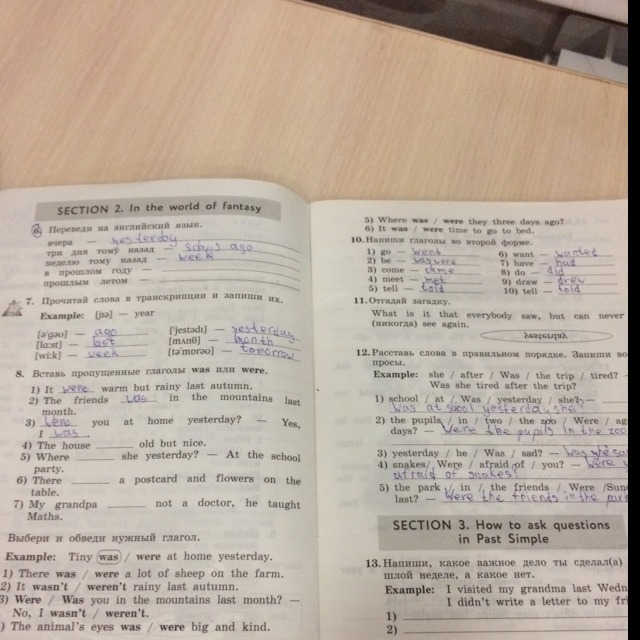 SECTION 2. In the world of fantasy
6. Переведи на английский язык.
вчера — yesterday
три дня тому назад — 3days ago
неделю тому назад — week
в прошлом году —
прошлым летом —
7. Прочитай слова в транскрипции и запиши их.
Example: [jɪə] — year
[ə'gəʊ] — ago ['jestədɪ] — yesterday
[lɑ:st] — last [mʌnθ] — month
[wi:k] — week [tə'mɒrəʊ] — tomorrow
8. Вставь пропущенные глаголы was или were.
1) It were warm but rainy last autumn.
2) The friends was in the mountains last
month.
3) Were you at home yesterday? — Yes,
I was.
4) The house ______ old but nice.
5) Where ______ she yesterday? — At the school
party.
6) There ______ a postcard and flowers on the
table.
7) My grandpa ______ not a doctor, he taught
Maths.
Выбери и обведи нужный глагол.
Example: Tiny was / were at home yesterday.
1) There was / were a lot of sheep on the farm.
2) It wasn't / weren't rainy last autumn.
3) Were / Was you in the mountains last month? —
No, I wasn't / weren't.
) The animal's eyes was / were big and kind.
5) Where was / were they three days ago?
6) It was / were time to go to bed.
10. Напиши глаголы во второй форме.
1) go — went 6) want — wanted
2) be — was were 7) have — had
3) come — came 8) do — did
4) meet — met 9) draw — drew
5) tell — told 10) tell — told
11. Отгадай загадку.
What is it that everybody saw, but can never
(никогда) see again.
yesterday
12. Расставь слова в правильном порядке. Запиши во
просы.
Example: she / after / Was / the trip / tired? —
Was she tired after the trip?
1) school / at / Was / yesterday / she? —
Was at scool yesterday she
2) the pupils / in / two / the zoo / Were / ag
days? — Were the pupils in the zoo
3) yesterday / he / Was / sad? —
4) snakes / Were / afraid of / you? — Were
afraid of snakes?
5) the park / in / the friends / Were / Sun
last? — Were the friends in the park
SECTION 3. How to ask questions
in Past Simple
13. Напиши, какое важное дело ты сделал(а)
шлой неделе, а какое нет.
Example: I visited my grandma last Wedn
I didn't write a letter to my fri
1)
2)